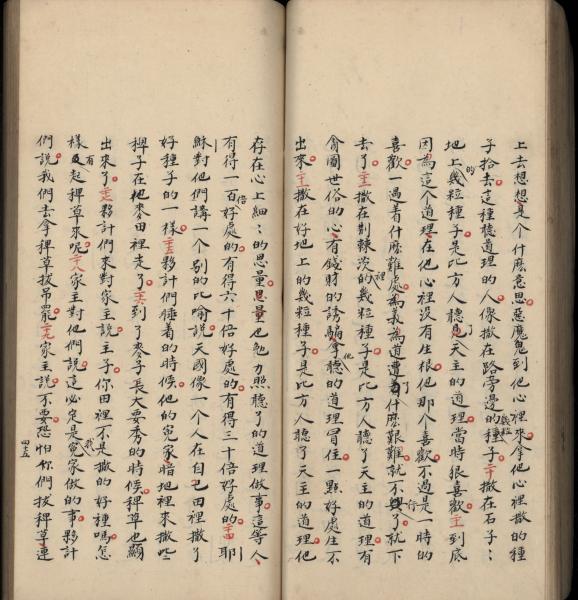 上去想想是个什麽意思惡魔鬼到他心裡來拿他心裡撒的種
子拾去這種聽道理的人像撒在路旁邊的幾粒種子二十撒在石子
地上的幾粒種子是比方人聽見了天主的道理當時狠喜歡主到底
因為這个道理在他心裡没有庄根他那个喜歡不過是一時的
喜歡一遇着什麽難處為義為道遭着了什麽艱難就不行了就下
去了主撒在荆棘茨裡的幾粒種子是比方人聽了天主的道理有
貪圖世俗的心有錢財的誘騙拿他聽的道理冒住一點好處庄不
出來主撒在好地上的幾粒種子是比方人聽了天主的道理他
存在心上細〻的思量思量也勉力照聽了的道理做事這等人
有得一百倍好處的有得六十倍好處的有得三十倍好處的古耶
穌對他們講一个别的比喻說天國像一个人在自己田裡撒了
好種子的一樣主夥計們睡着的時候他的冤家暗地裡來撒些
稗子在麥田裡走了主到了麥子長大要秀的時候稗草也顯
出來了主夥計們來對家主說主子你田裡不是撒的好種嗎怎
樣有起稗草來呢二八家主對他們說這必定是我冤家做的事夥計
們說我們去拿稗草拔吊罷二九家主說不要恐怕你們拔稗草連
四五